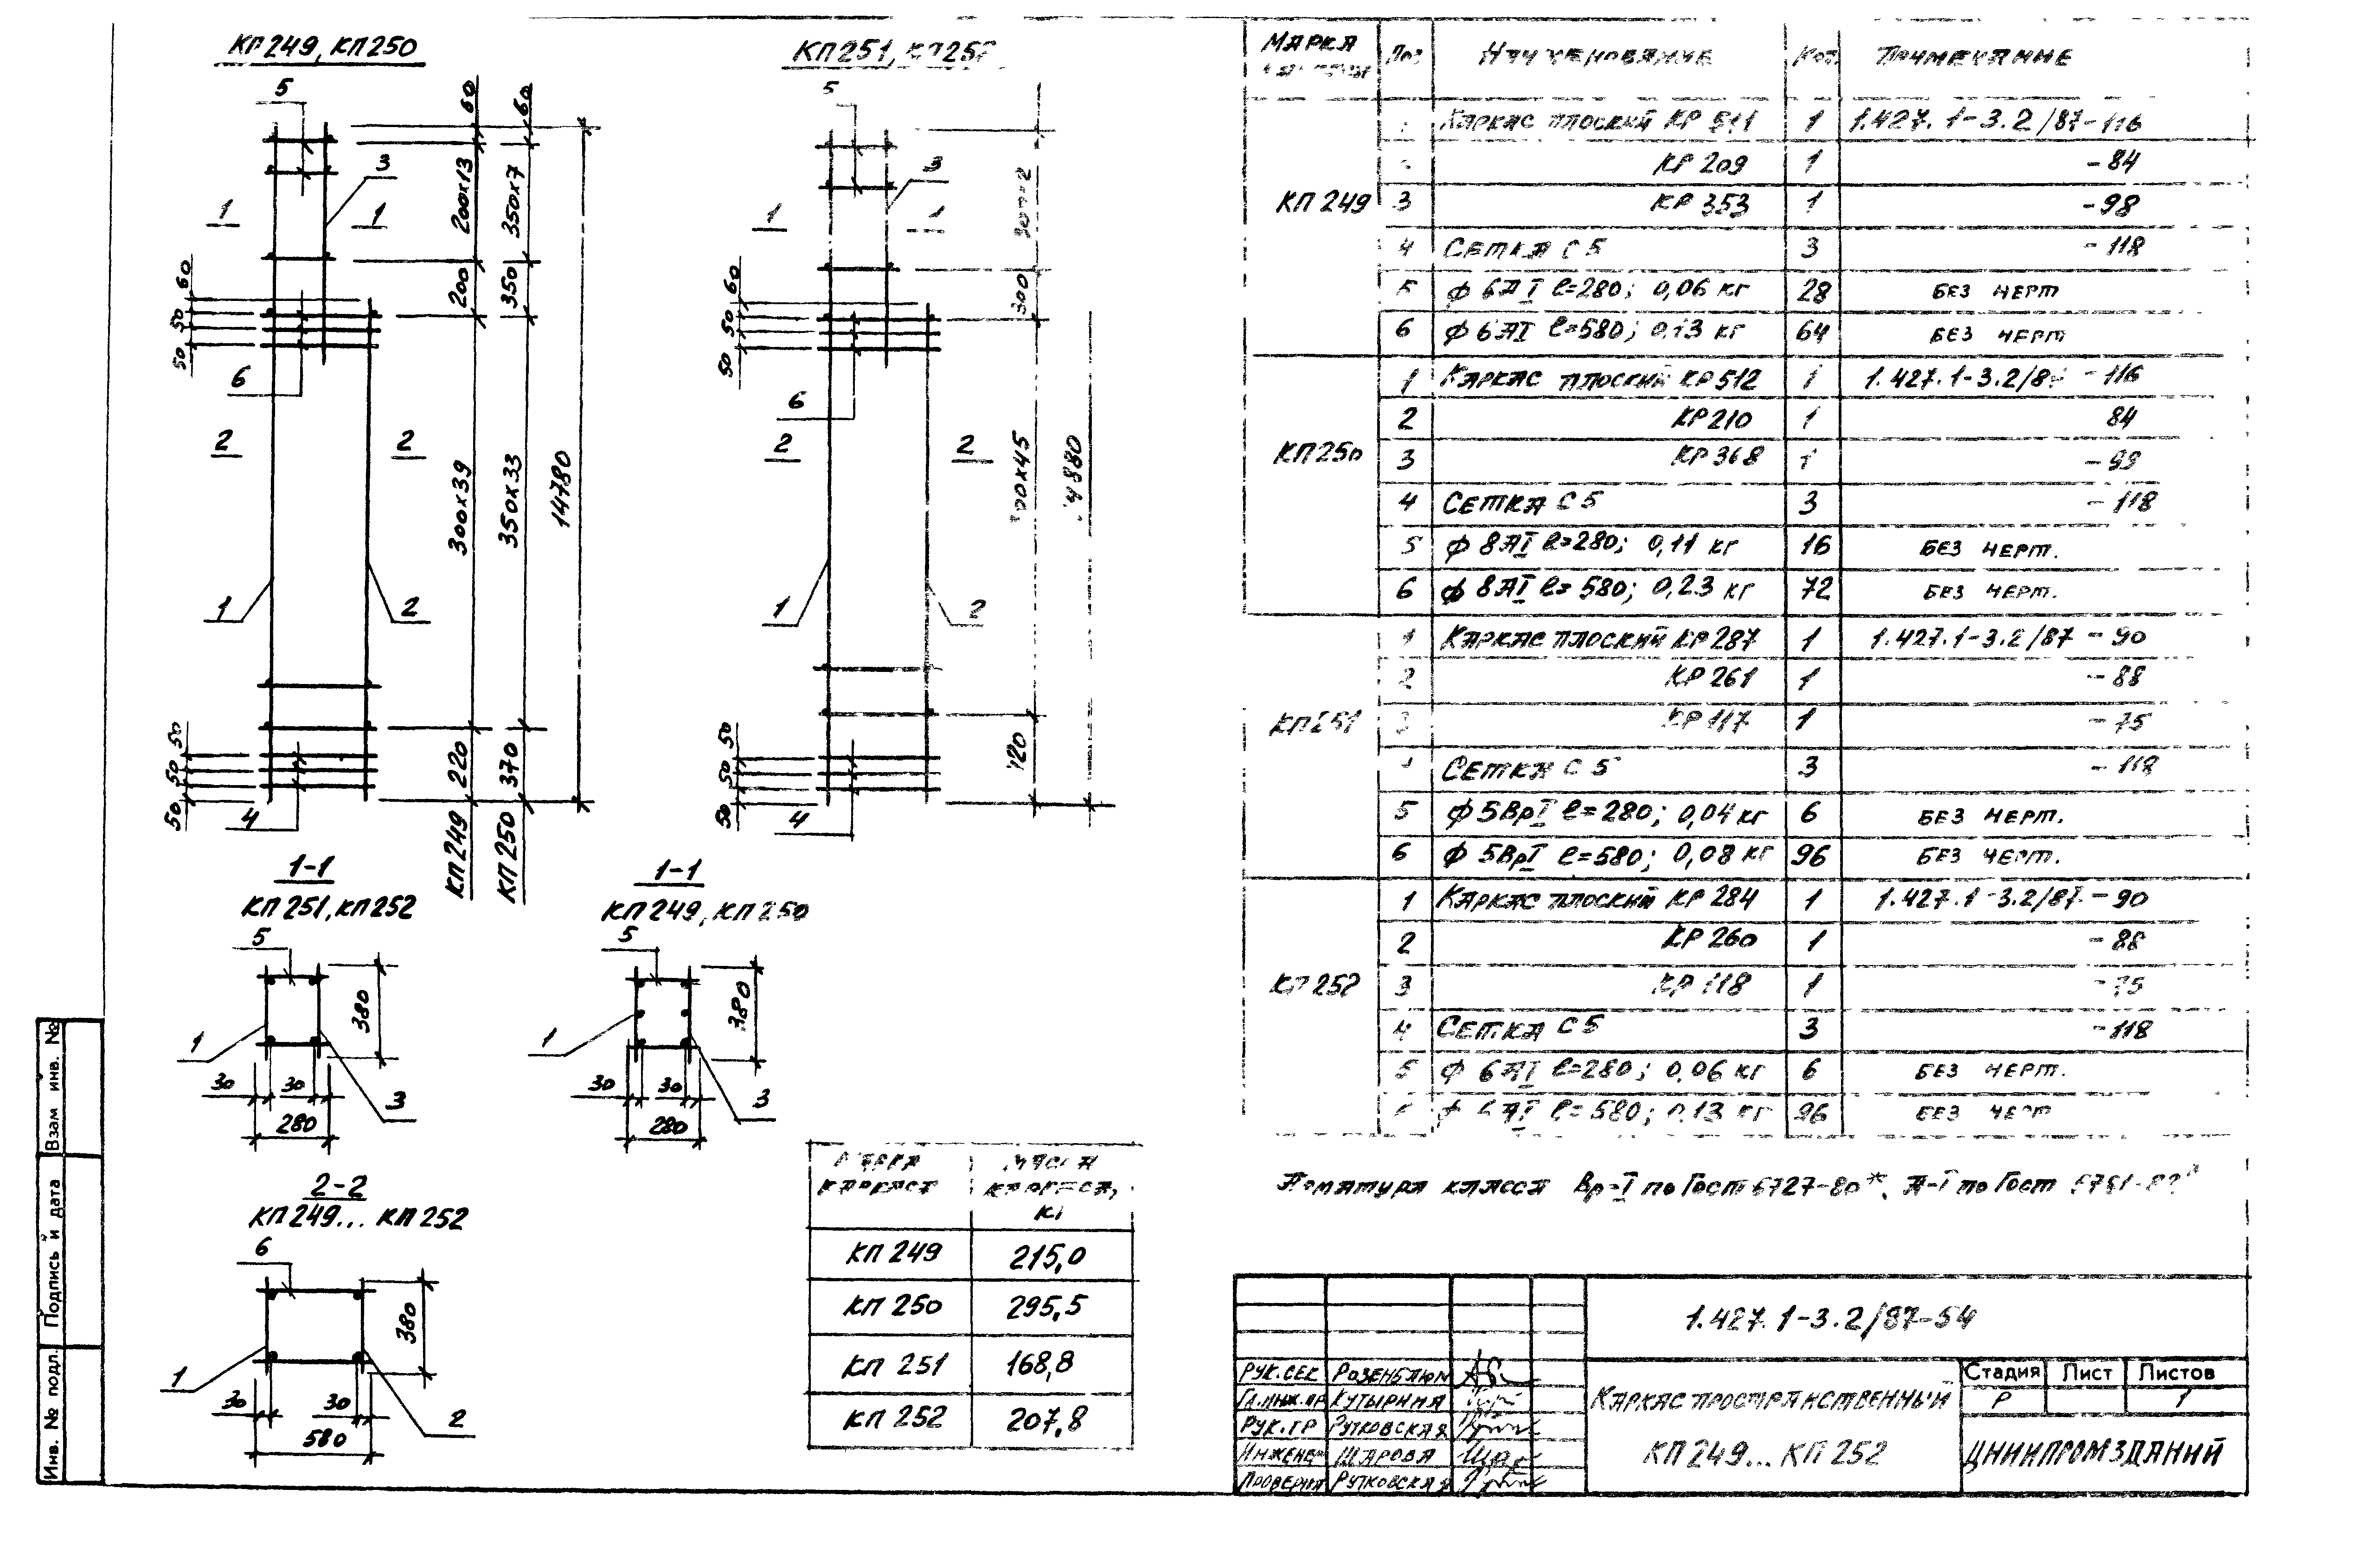 КП 249, КП 250
5
3
1 1
60
200x13
200
300x39
220
КП 249
60
350x7
350
350x33
370
КП 250
14780
60
50
50
6
2 2
1
2
50
50
50
4
КП 251,
5
3
1 1
300
60
50
50
6
2 2
1
2
120
50
50
50
4
1-1
КП 251, КП 252
5
380
1
30 30
3
280
1-1
КП 249, КП 250
5
380
1
30 30
3
280
2-2
КП 249... КП 252
6
380
1
30 30
2
580
КАРКАСА
КП 249 215,0
КП 250 295,5
КП 251 168,8
КП 252 207,8
МАРКА Поз НАИМЕНОВАНИЕ Кол. ПРИМЕЧАНИЕ
КП 249
КАРКАС ПЛОСКИЙ КР 511 1 1.427.1-3.2/87-116
КР 209 1 -84
3 КР 353 1 -98
4 СЕТКА С 5 3 -118
5 ф 6АI ℓ=280; 0,06 кг 28 БЕЗ ЧЕРТ
6 ф 6АI ℓ=580; 0,13 кг 64 БЕЗ ЧЕРТ
КП 250
1 КАРКАС ПЛОСКИЙ КР 512 1 1.427.1-3.2/87 -116
2 КР 210 1 84
3 КР 368 1 -99
4 СЕТКА С 5 3 -118
5 ф 8АI ℓ=280; 0,11 кг 16 БЕЗ ЧЕРТ.
6 ф 8АI ℓ=580; 0,23 кг 72 БЕЗ ЧЕРТ.
КП 251
1 КАРКАС ПЛОСКИЙ КР 287 1 1.427.1-3.2/87 -90
2 КР 261 1 -88
3 КР 117 1 -75
СЕТКА С 5 3 -118
5 ф 5ВрI ℓ=280; 0,04 кг 6 БЕЗ ЧЕРТ.
6 ф 5ВрI ℓ=580; 0,08 кг 96 БЕЗ ЧЕРТ.
КП 252
1 КАРКАС ПЛОСКИЙ КР 284 1 1.427.1-3.2/87.-90
2 КР 260 1 -88
3 КР 118 1 -75
4 СЕТКА С 5 3 -118
5 ф 6АI ℓ=280; 0,06 кг 6 БЕЗ ЧЕРТ.
6 ф 6АI ℓ=580; 0,13 кг 96 БЕЗ ЧЕРТ
Арматура класса Вр-I по Гост 6727-80*, А-I по Гост
1.427.1-3.2/87-54
РУК.СЕК РОЗЕНБЛЮМ
ГЛ.ИНЖ.ПР КУТЫРИНА
РУК.ГР РУТКОВСКАЯ
ИНЖЕНЕР ШАРОВА
ПРОВЕРИЛ РУТКОВСКАЯ
КАРКАС ПРОСТРАНСТВЕННЫЙ
КП 249... КП 252
Стадия Лист Листов
Р 1
ЦНИИПРОМЗДАНИЙ
Взам инв. №
Подпись и дата
Инв. № подл.